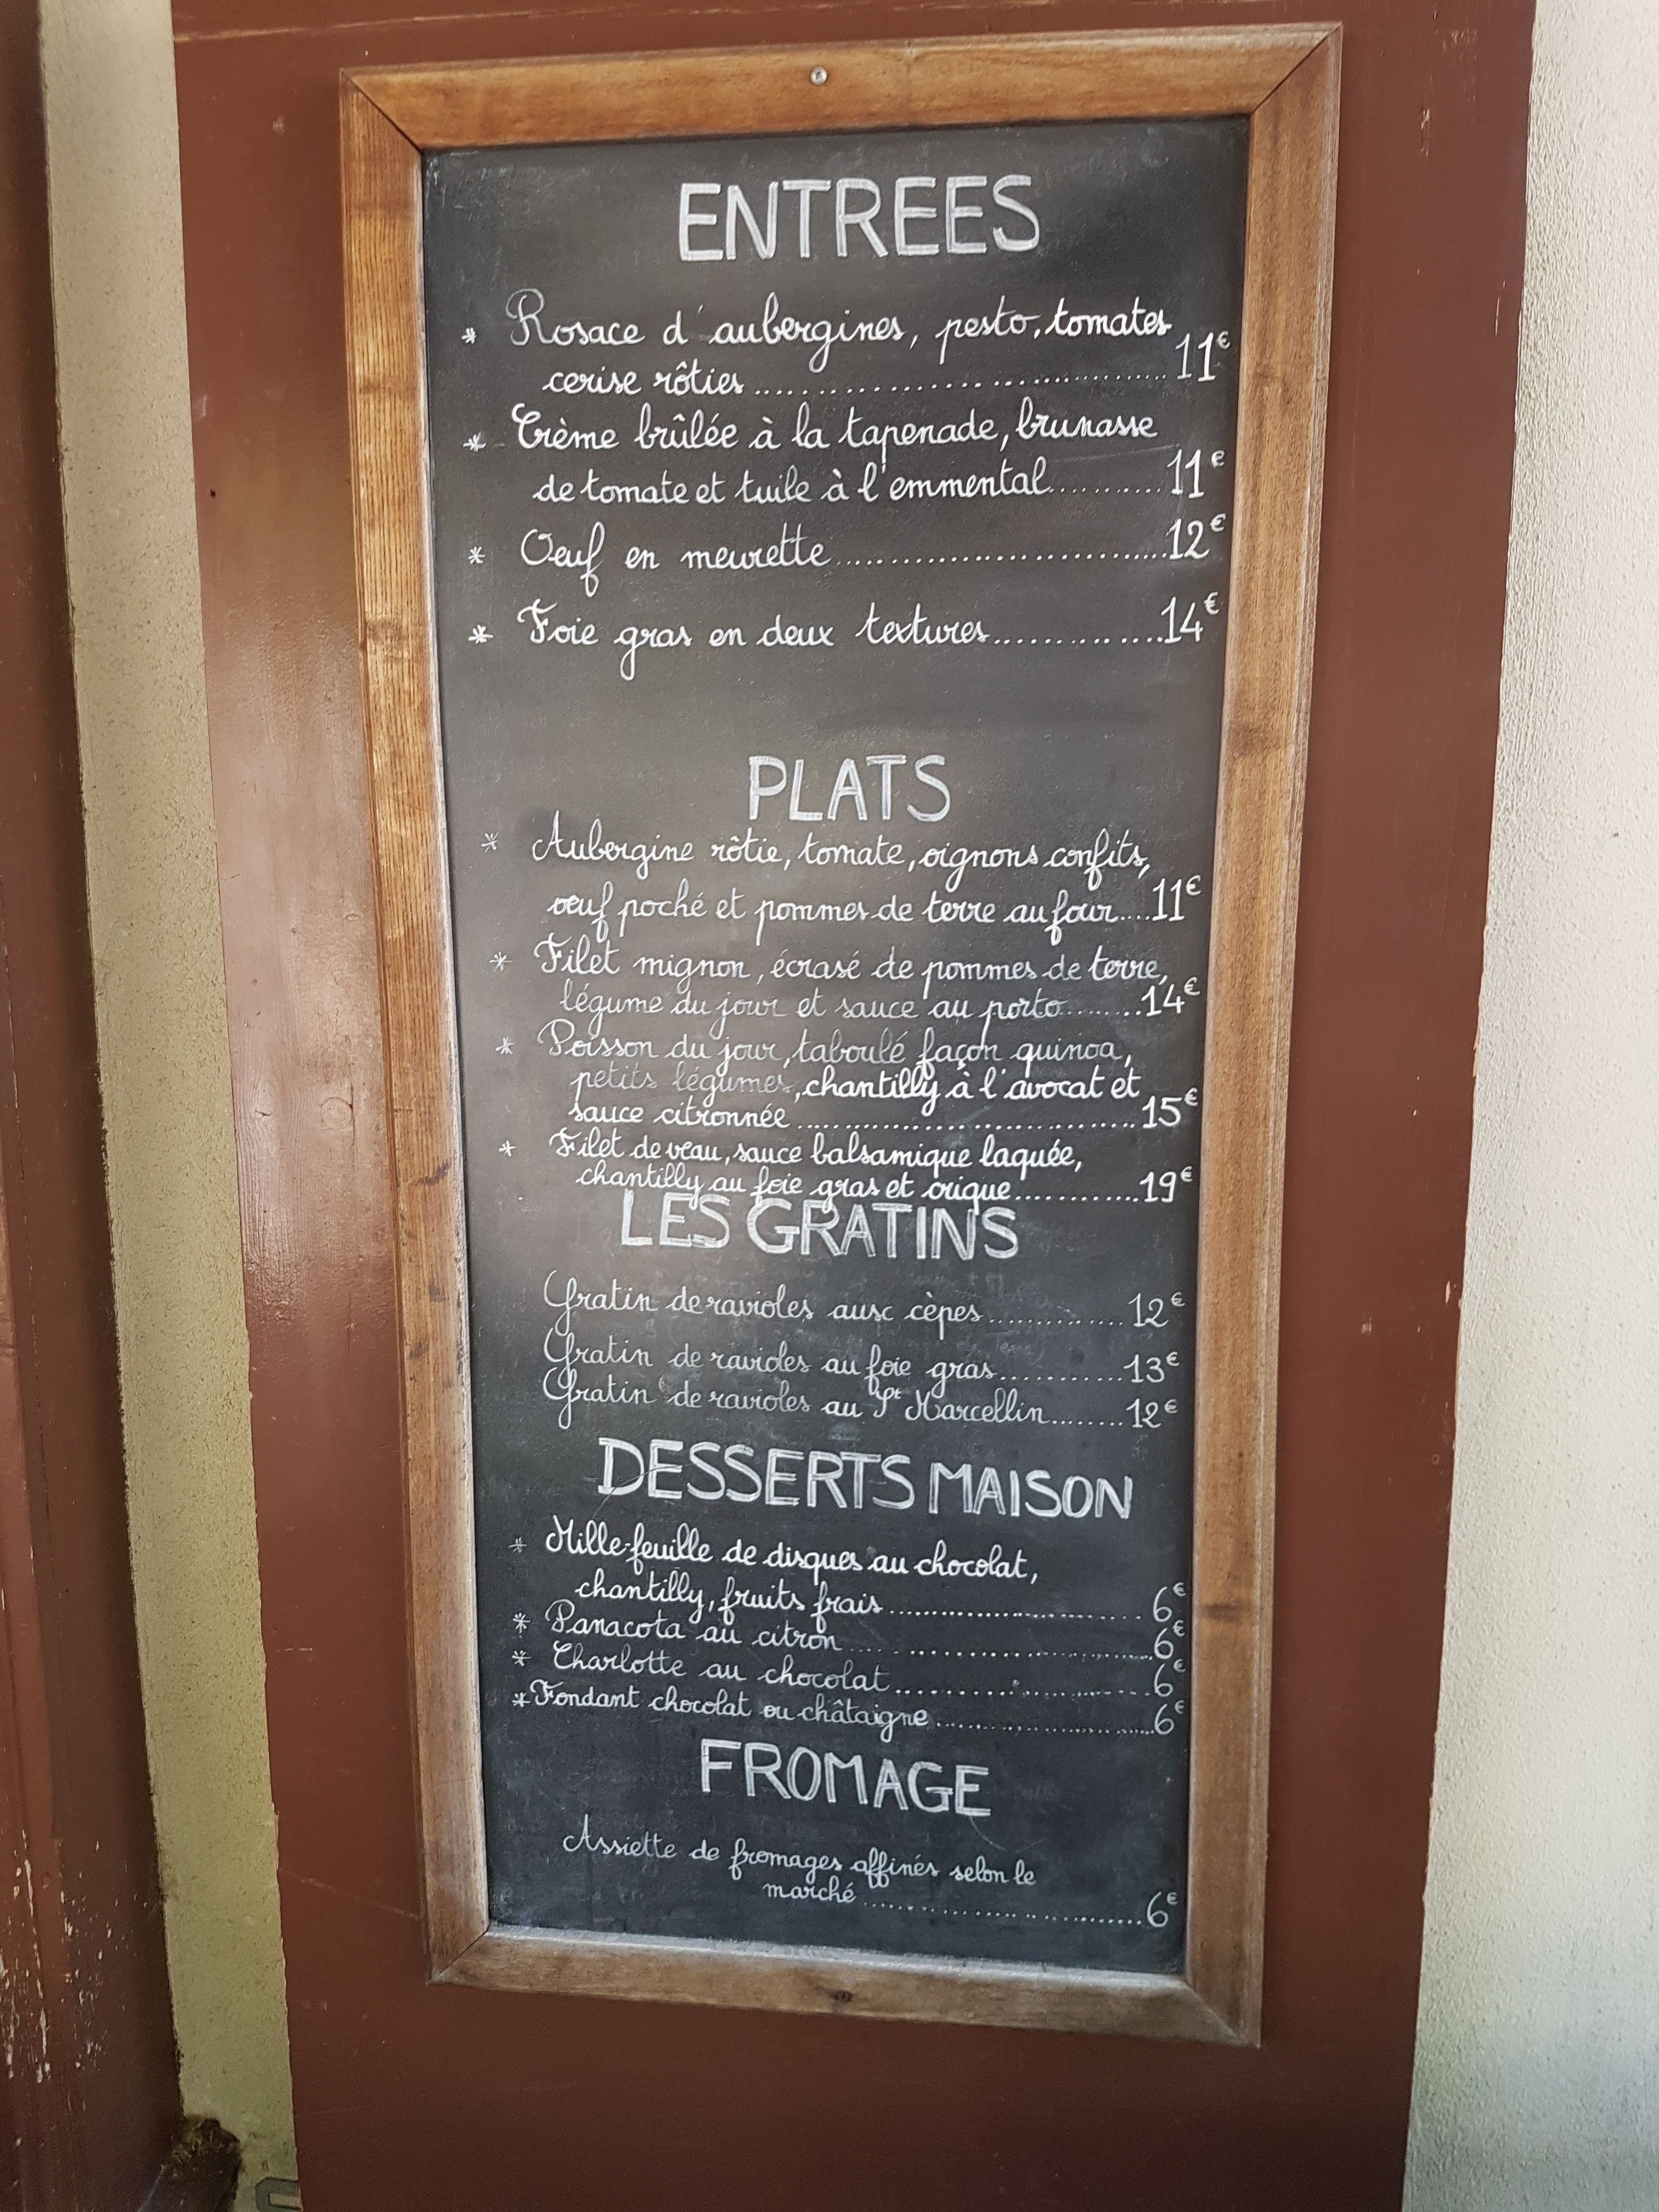 ENTREES
* Rosace d'aubergines, pesto, tomates
cerise rôties .................... 11€
* Crème brûlée à la tapenade, brunasse
de tomate et tuile à l'emmental.......... 11€
* Oeuf en meurette.................... 12€
* Foie gras en deux textures.............. 14€
PLATS
* Aubergine rôtie, tomate, oignons confits,
oeuf poché et pommes de terre au four.... 11€
* Filet mignon, écrasé de pommes de terre,
légume du jour et sauce au porto........ 14€
* Poisson du jour, taboulé façon quinoa,
petits légumes, chantilly à l'avocat et
sauce citronnée .................... 15€
* Filet de veau, sauce balsamique laquée,
chantilly au foie gras et crique............ 19€
LES GRATINS
Gratin de ravioles aux cèpes............. 12€
Gratin de ravioles au foie gras........... 13€
Gratin de ravioles au St Marcellin........ 12€
DESSERTS MAISON
* Mille-feuille de disques au chocolat,
chantilly, fruits frais .................... 6€
* Panacota au citron .................... 6€
* Charlotte au chocolat .................... 6€
* Fondant chocolat ou châtaigne .................... 6€
FROMAGE
Assiette de fromages affinés selon le
marché .................... 6€